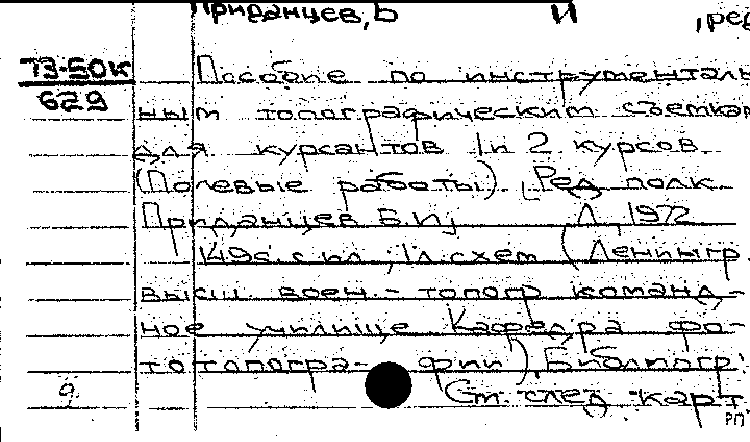 Приданцев, Б И , ред
73-50к
629
Пособие по инструменталь
ным топографическим съемкам
для курсантов 1 и 2 курсов
(Полевые работы). [Ред полк.
Приданцев Б.И] Л, 1972
149с. с ил., 1 л. схем (Ленингр.
высш воен.- топогр команд-
ное училище Кафедра фо-
тотопогра- фии). Библиогр:
9 См. след карт.
РП